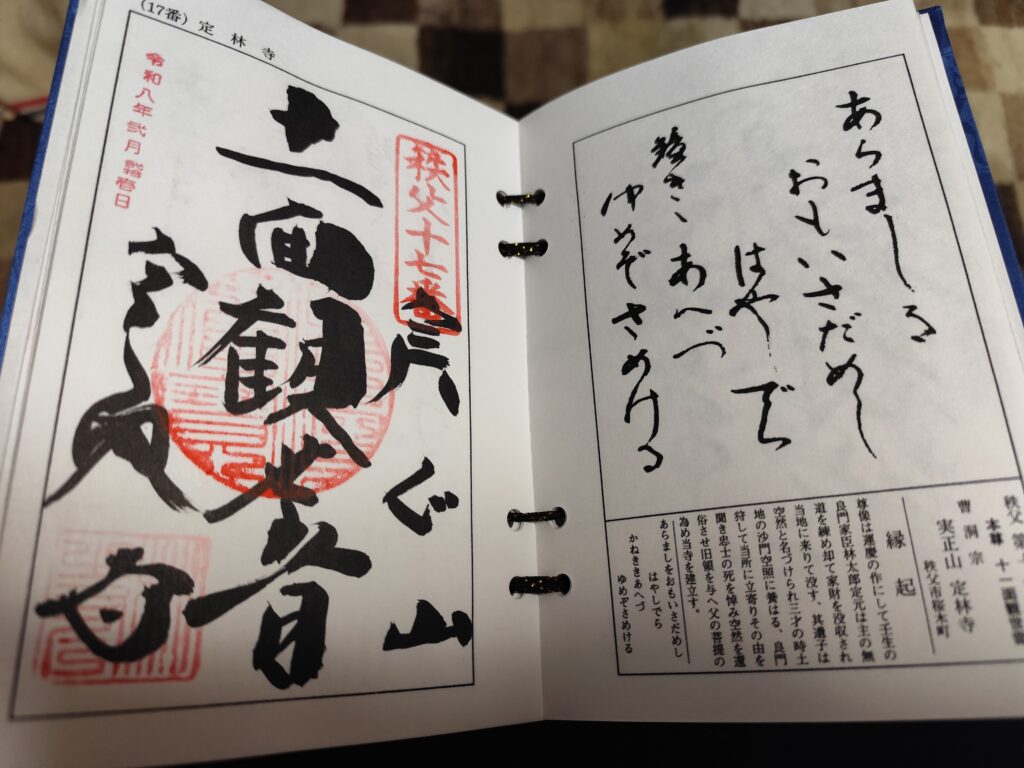 あらましを
おもいさだめし
はやしでら
鐘きゝあへづ
ゆめぞさめける
秩父 第十
本尊 十一面観世音
曹洞宗
実正山 定林寺
秩父市桜木町
縁起
尊像は運慶の作にして壬生の
良門家臣林太郎定元は主の無
道を練め却て家財を没収され
当地に来りて没す、其遺子は
空然と名づけられ三才の時土
地の沙門空照に養はる、良門
狩して当所に立寄りその由を
聞き忠士の死を悼み空然を還
俗させ旧領を与へ父の菩提の
為め当寺を建立す。
あらましをおもいさだめし
はやしでら
かねききあへづ
ゆめぞさめける
(17番) 定林寺
秩父十七番
実正山
十一面観世音
定林寺
令和八年 弐月 壱日